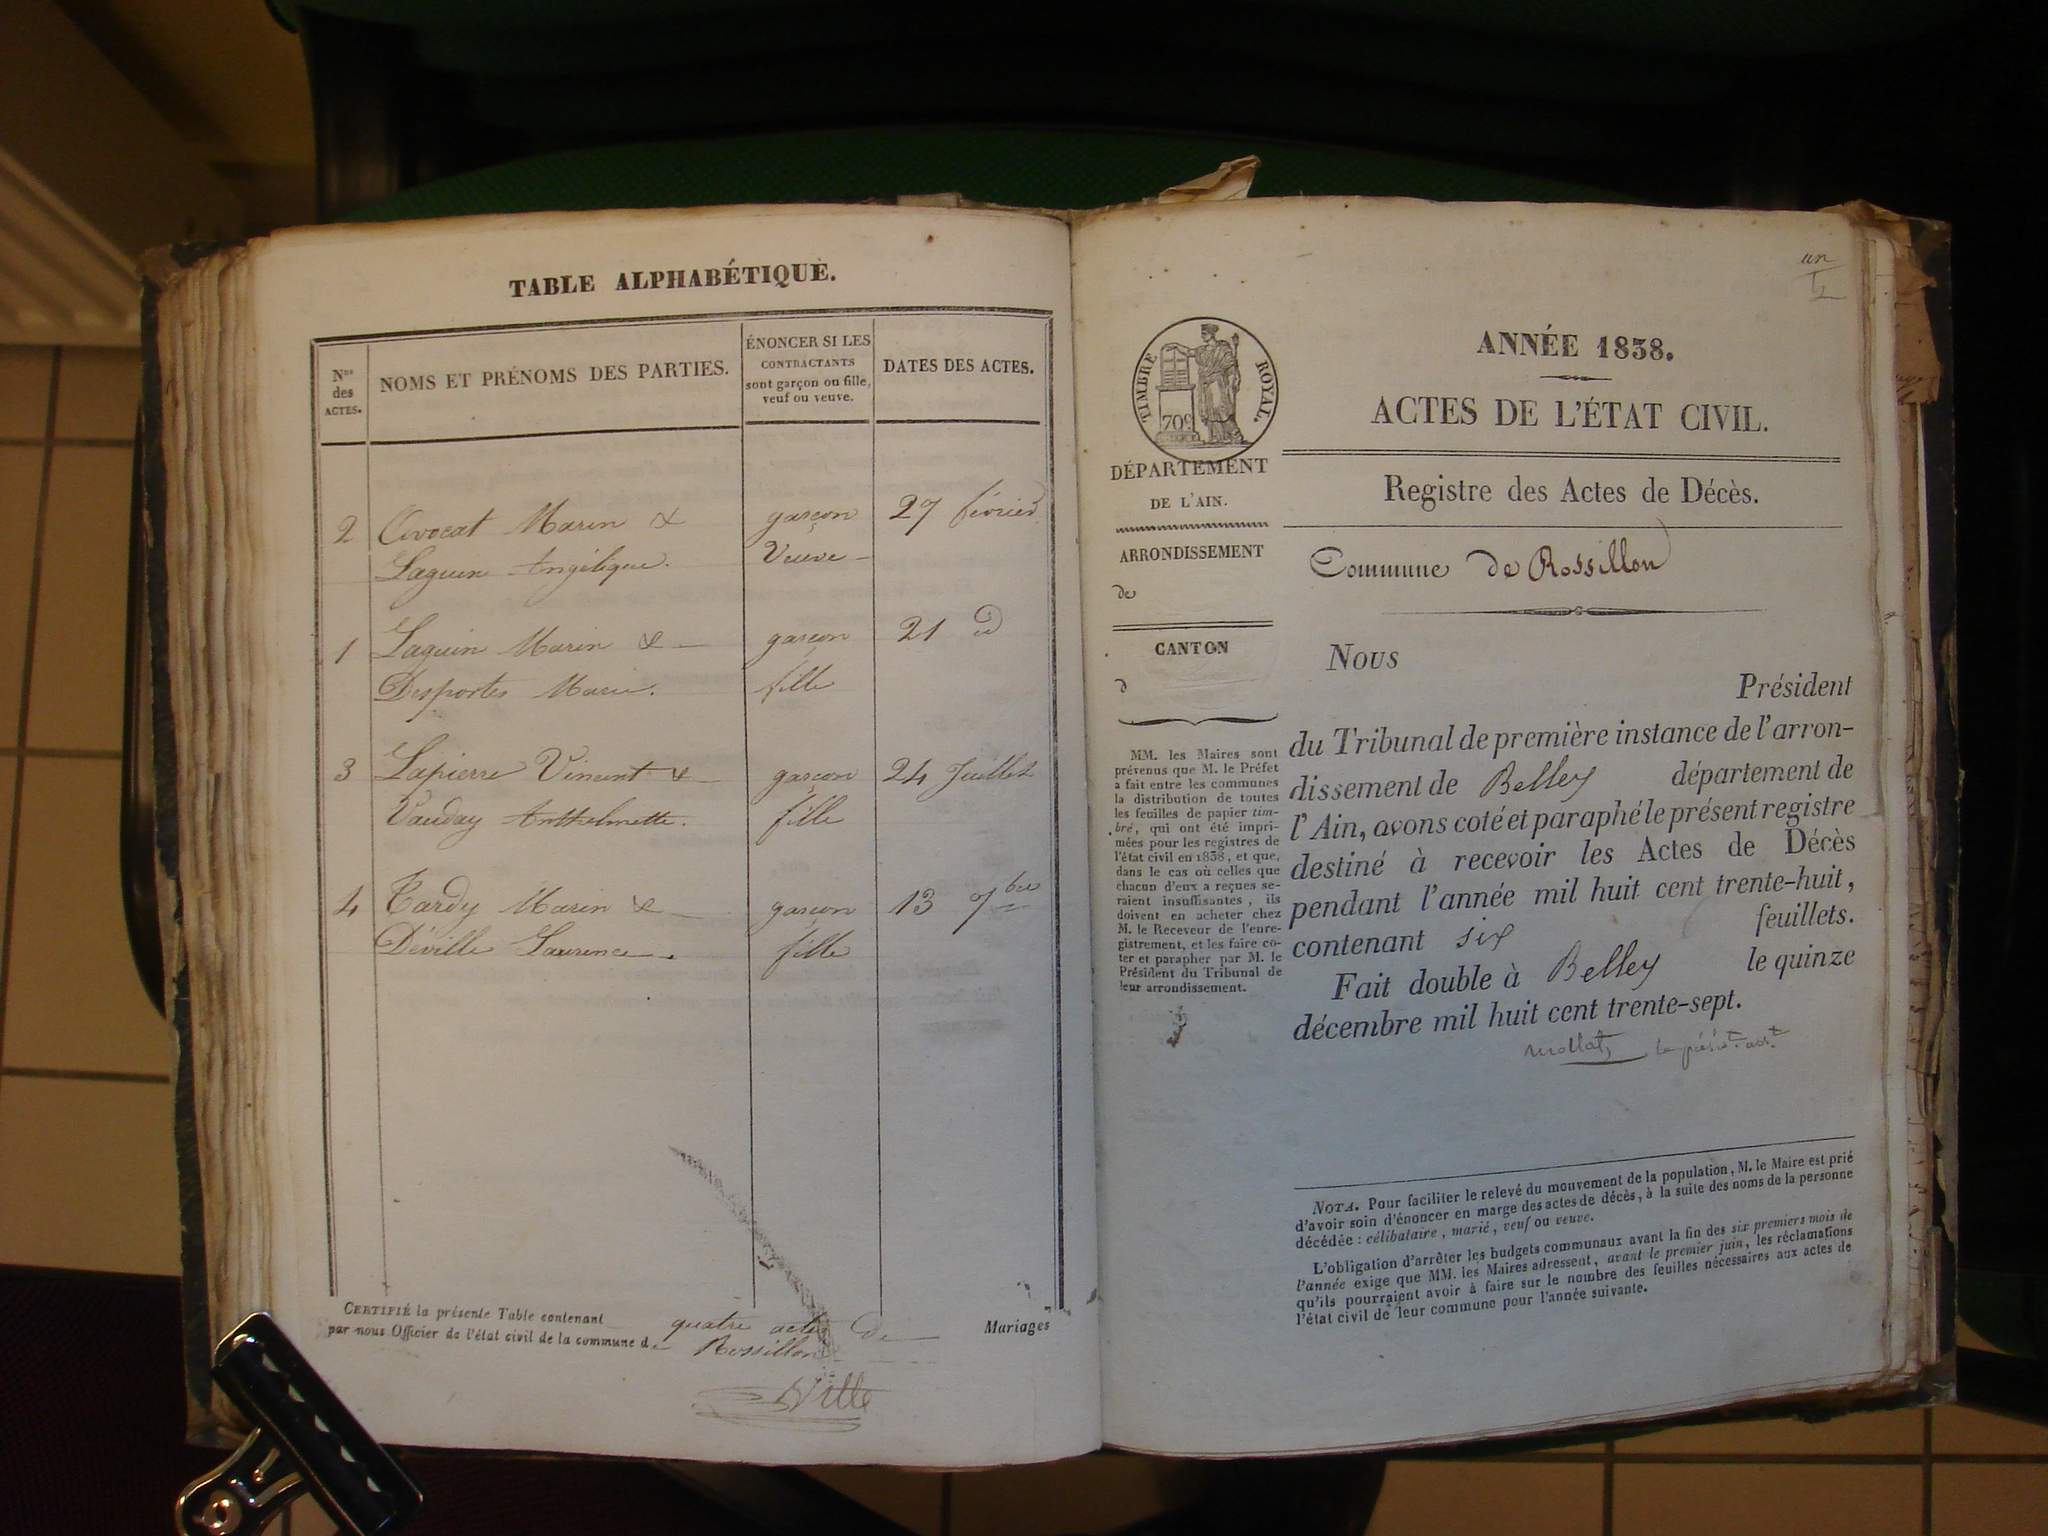 TABLE ALPHABÉTIQUE.
Nos des ACTES.
NOMS ET PRÉNOMS DES PARTIES.
ÉNONCER SI LES
CONTRACTANTS
sont garçon ou fille,
veuf ou veuve.
DATES DES ACTES.
2 Avocat Marin & garçon 27 février
Laguin Angélique. Veuve
1 Laguin Marin & garçon 21 d
Desportes Marie. fille
3 Lapierre Vincent & garçon 24 Juillet
Vauday Anthelmette. fille
4 Tardy Marin & garçon 13 7bre
Déville Laurence. fille
CERTIFIÉ la présente Table contenant quatre actes de Mariages
par nous Officier de l'état civil de la commune de Rossillon
DVille
un
ANNÉE 1838.
ACTES DE L'ÉTAT CIVIL.
Registre des Actes de Décès.
Commune de Rossillon
TIMBRE ROYAL.
70c
DÉPARTEMENT
DE L'AIN.
ARRONDISSEMENT
de
CANTON
d
MM. les Maires sont
prévenus que M. le Préfet
a fait entre les communes
la distribution de toutes
les feuilles de papier tim-
bré, qui ont été impri-
mées pour les registres de
l'état civil en 1838, et que,
dans le cas où celles que
chacun d'eux a reçues se-
raient insuffisantes, ils
doivent en acheter chez
M. le Receveur de l'enre-
gistrement, et les faire co-
ter et parapher par M. le
Président du Tribunal de
leur arrondissement.
Nous
Président
du Tribunal de première instance de l'arron-
dissement de Belley département de
l'Ain, avons coté et paraphé le présent registre
destiné à recevoir les Actes de Décès
pendant l'année mil huit cent trente-huit,
contenant six feuillets.
Fait double à Belley le quinze
décembre mil huit cent trente-sept.
NOTA. Pour faciliter le relevé du mouvement de la population, M. le Maire est prié
d'avoir soin d'énoncer en marge des actes de décès, à la suite des noms de la personne
décédée : célibataire, marié, veuf ou veuve.
L'obligation d'arrêter les budgets communaux avant la fin des six premiers mois de
l'année exige que MM. les Maires adressent, avant le premier juin, les réclamations
qu'ils pourraient avoir à faire sur le nombre des feuilles nécessaires aux actes de
l'état civil de leur commune pour l'année suivante.